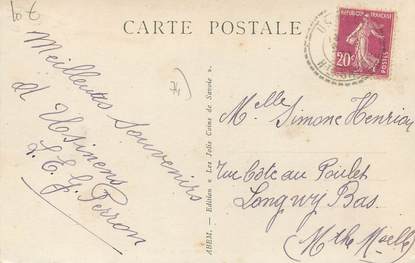 CARTE POSTALE
Meilleurs souvenirs
d'Usinens
L. E. G. Perron
ABEM. — Edition « Les Jolis Coins de Savoie ».
REPUBLIQUE FRANÇAISE
20c
POSTES
Melle Simone Henrion
rue Côte au Poulet
Longwy Bas.
(Mthe Melle)